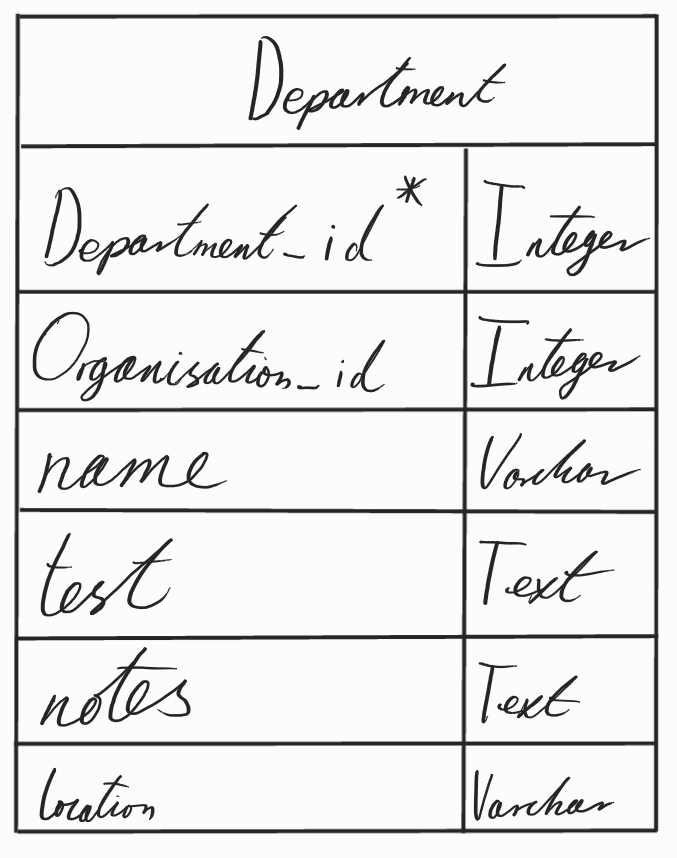 Department
Department_id* Integer
Organisation_id Integer
name Varchar
test Text
notes Text
location Varchar